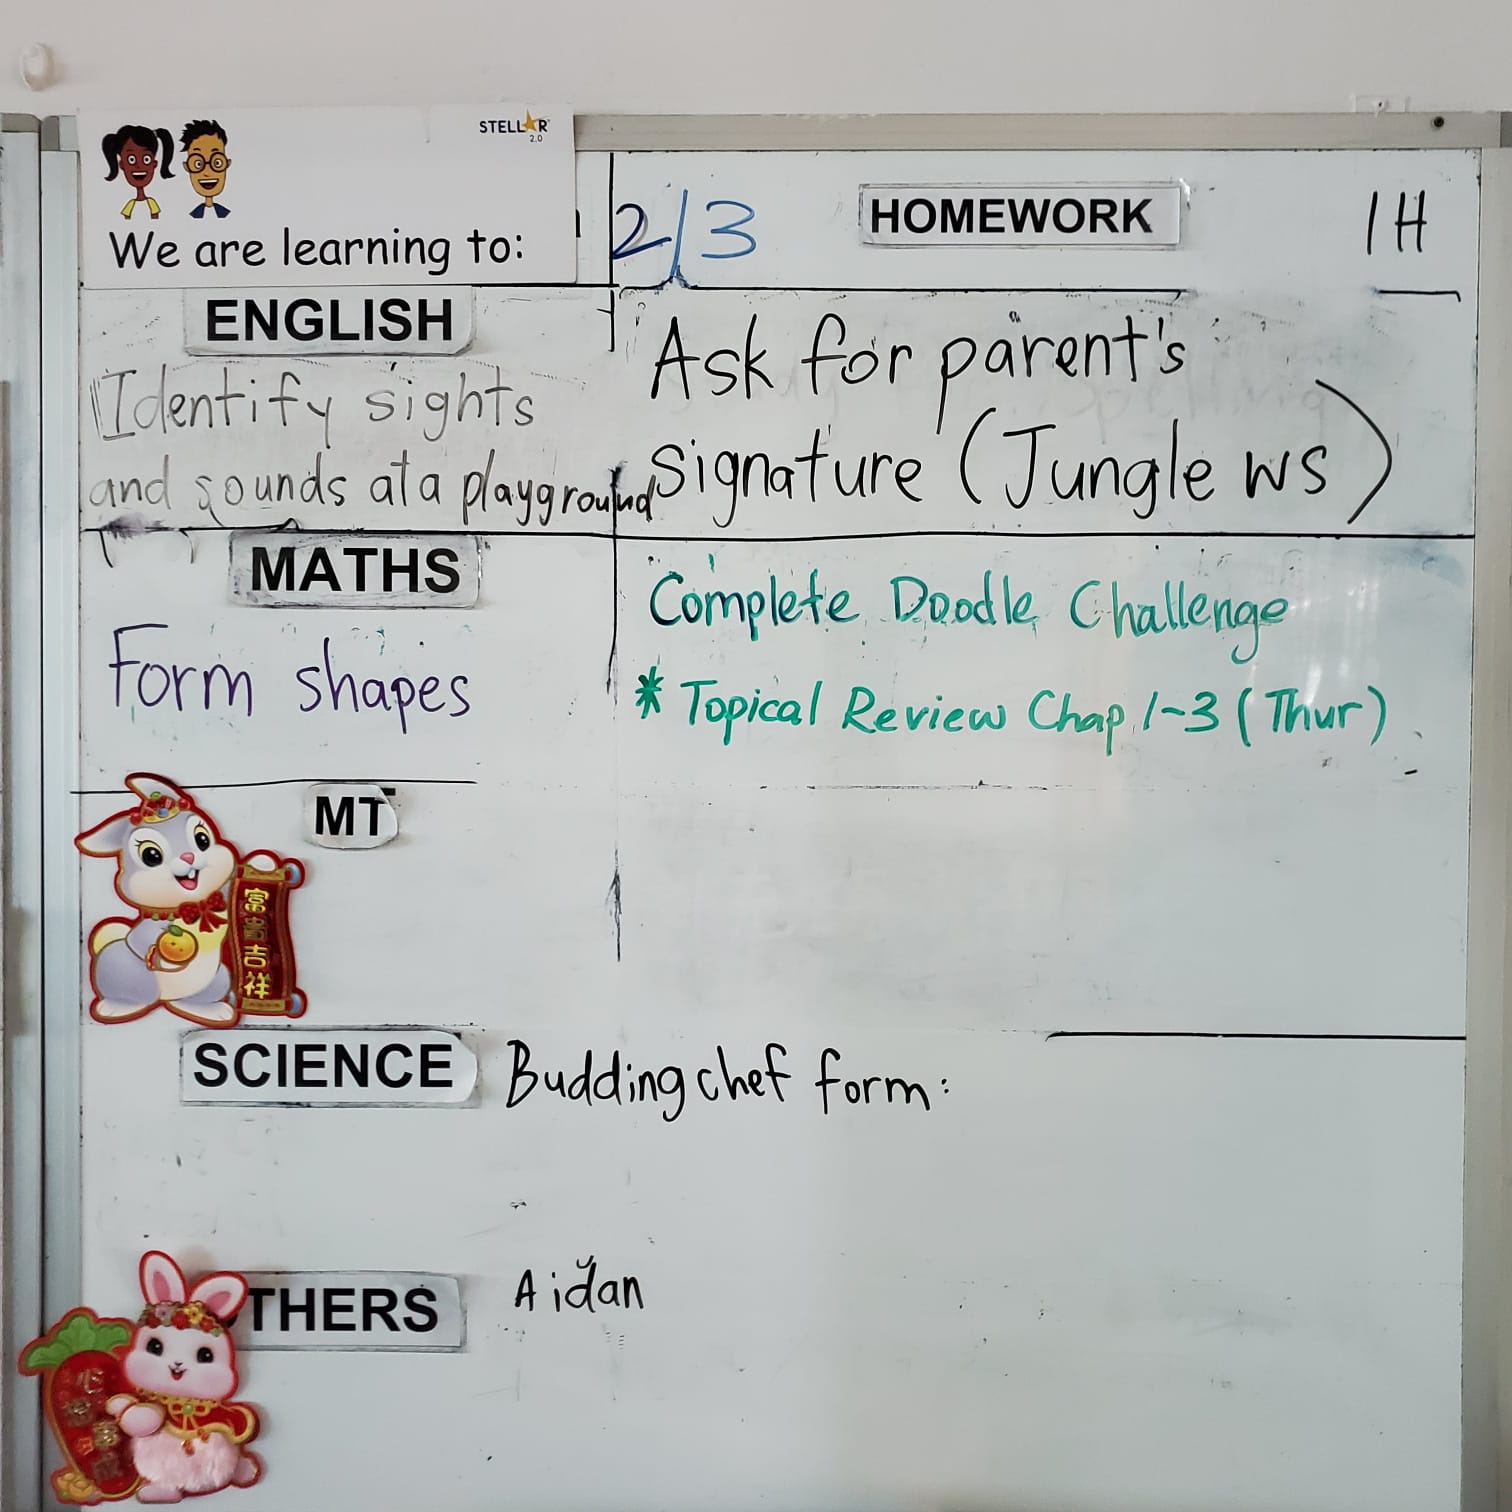 STELLAR
2.0
We are learning to:
2/3
HOMEWORK
1H
ENGLISH
Identify sights
and sounds at a playground
Ask for parent's
signature (Jungle WS)
MATHS
Form shapes
Complete Doodle Challenge
* Topical Review Chap 1~3 (Thur)
MT
富貴吉祥
SCIENCE
Budding chef form:
THERS
Aidan